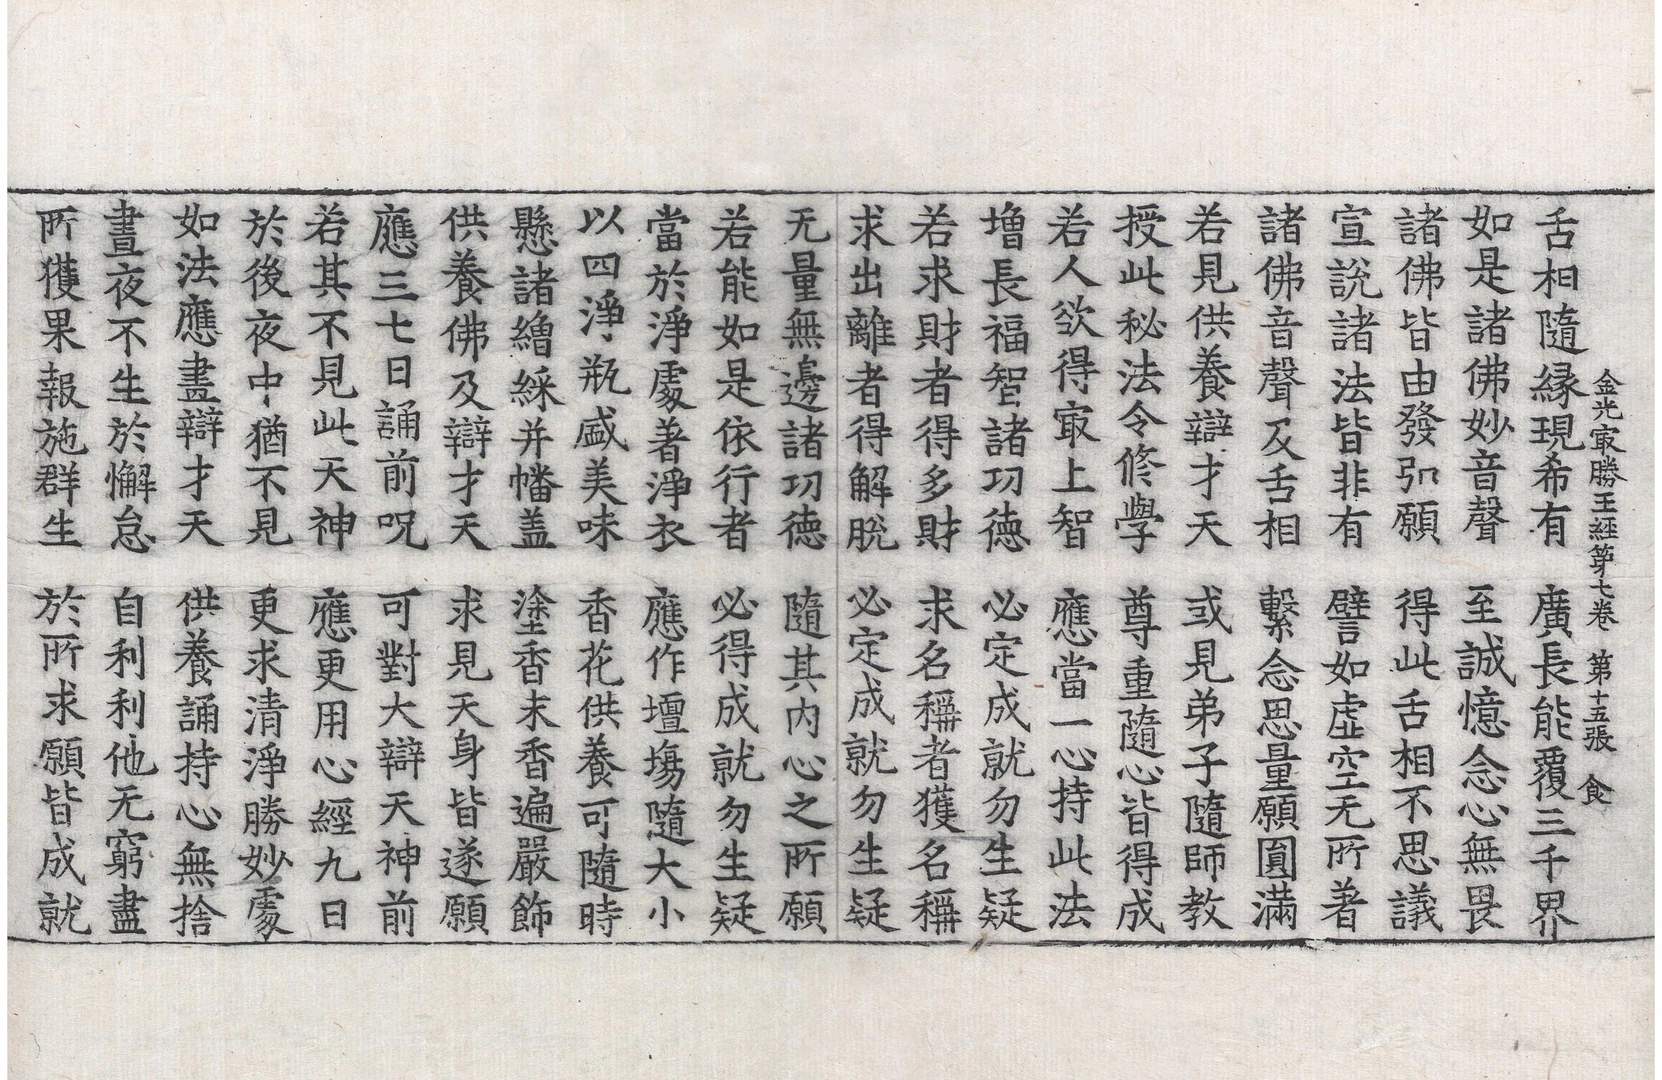 金光㝡勝王經第七卷 第十五張 食
舌相隨緣現希有 廣長能覆三千界
如是諸佛妙音聲 至誠憶念心無畏
諸佛皆由發弘願 得此舌相不思議
宣說諸法皆非有 譬如虛空无所著
諸佛音聲及舌相 繫念思量願圓滿
若見供養辯才天 或見弟子隨師教
授此秘法令修學 尊重隨心皆得成
若人欲得㝡上智 應當一心持此法
增長福智諸功德 必定成就勿生疑
若求財者得多財 求名稱者獲名稱
求出離者得解脫 必定成就勿生疑
无量無邊諸功德 隨其內心之所願
若能如是依行者 必得成就勿生疑
當於淨處著淨衣 應作壇場隨大小
以四淨瓶盛美味 香花供養可隨時
懸諸繒綵并幡盖 塗香末香遍嚴飾
供養佛及辯才天 求見天身皆遂願
應三七日誦前呪 可對大辯天神前
若其不見此天神 應更用心經九日
於後夜中猶不見 更求清淨勝妙處
如法應畫辯才天 供養誦持心無捨
晝夜不生於懈怠 自利利他无窮盡
所獲果報施群生 於所求願皆成就